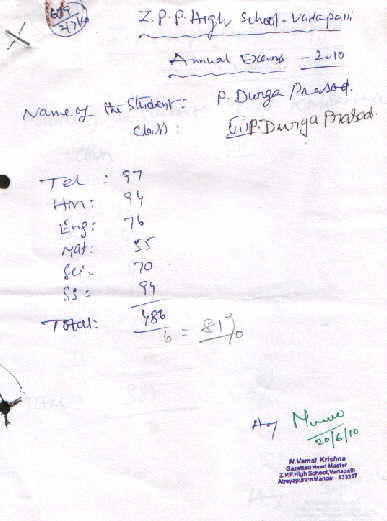 Z.P.P. High School - Vadapalli
Annual Exams - 2010
Name of the Student: P. Durga Prasad.
Class: VII P. Durga Prasad.
Tel : 97
Hin : 94
Eng: 76
Mat: 55
Sci: 70
SS: 94
Total: 486
6 = 81%
20/6/10
N.Vamsi Krishna
Gazetted Head Master
Z.P.P.High School, Vadapalli
Atreyapuram Mandal - 533237